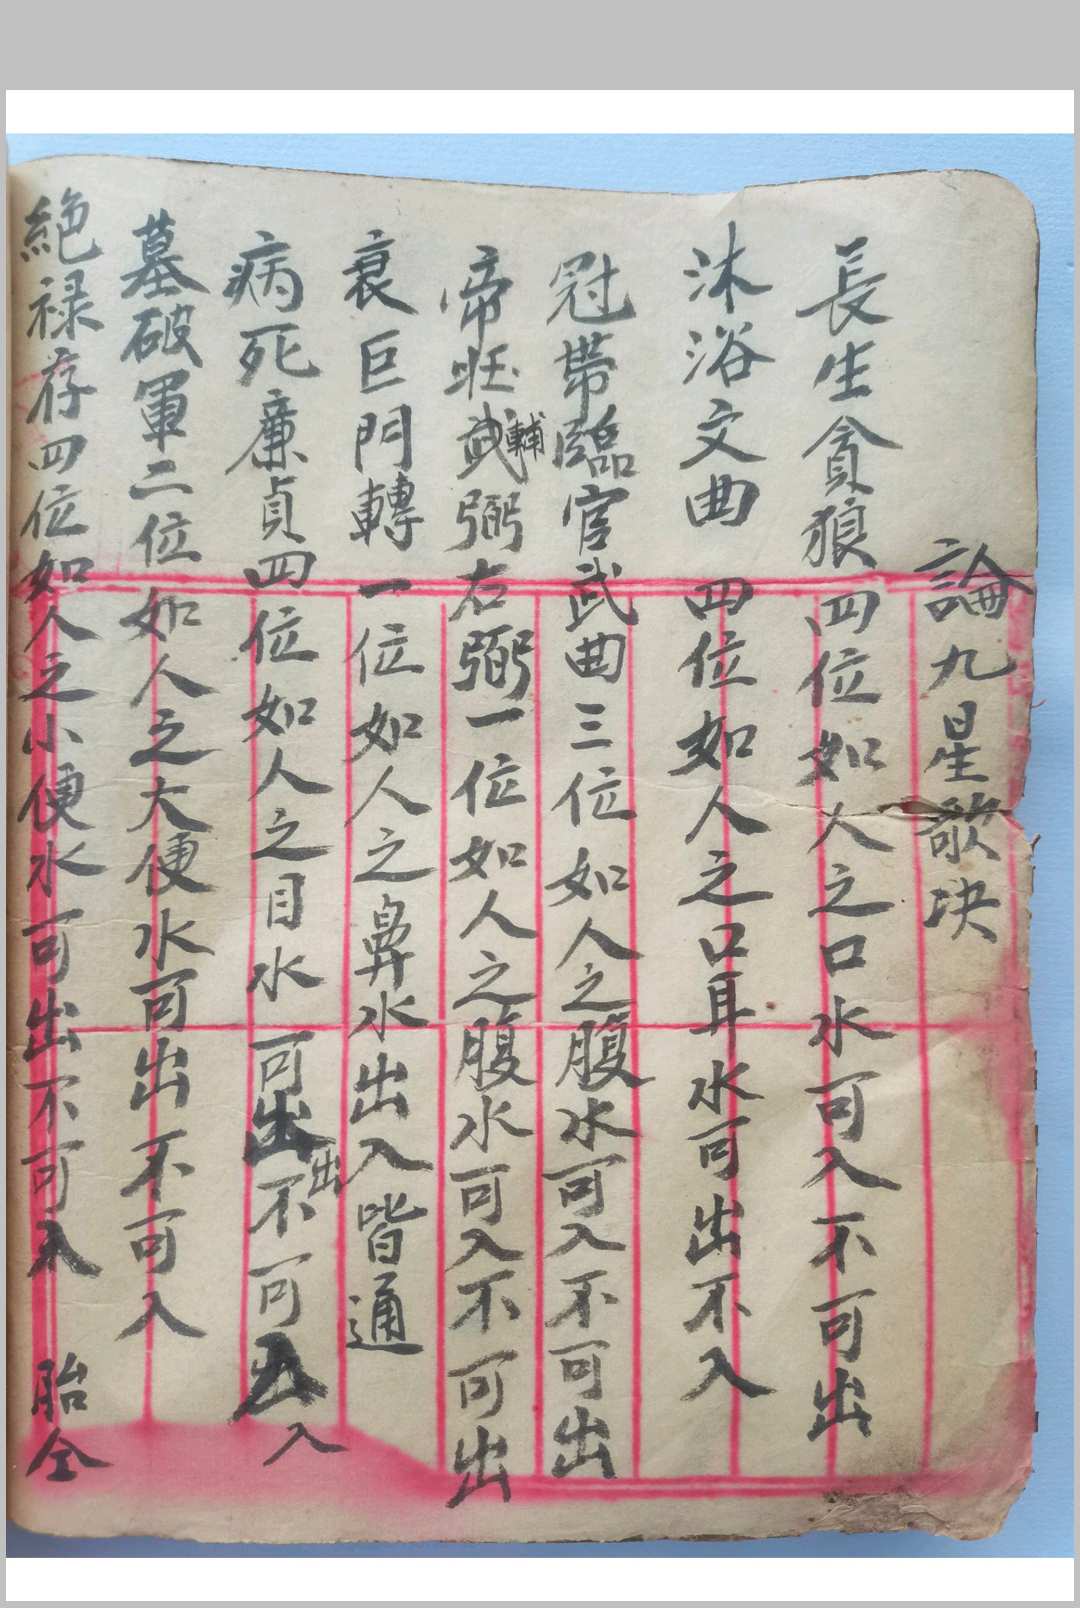 論九星歌决
長生貪狼四位如人之口水可入不可出
沐浴文曲四位如人之口耳水可出不入
冠帶臨官武曲三位如人之腹水可入不可出
帝旺武輔弼右弼一位如人之腹水可入不可出
衰巨門轉一位如人之鼻水出入皆通
病死廉貞四位如人之目水可出不可入
墓破軍二位如人之大便水可出不可入
絕禄存四位如人之小便水可出不可入 胎仝